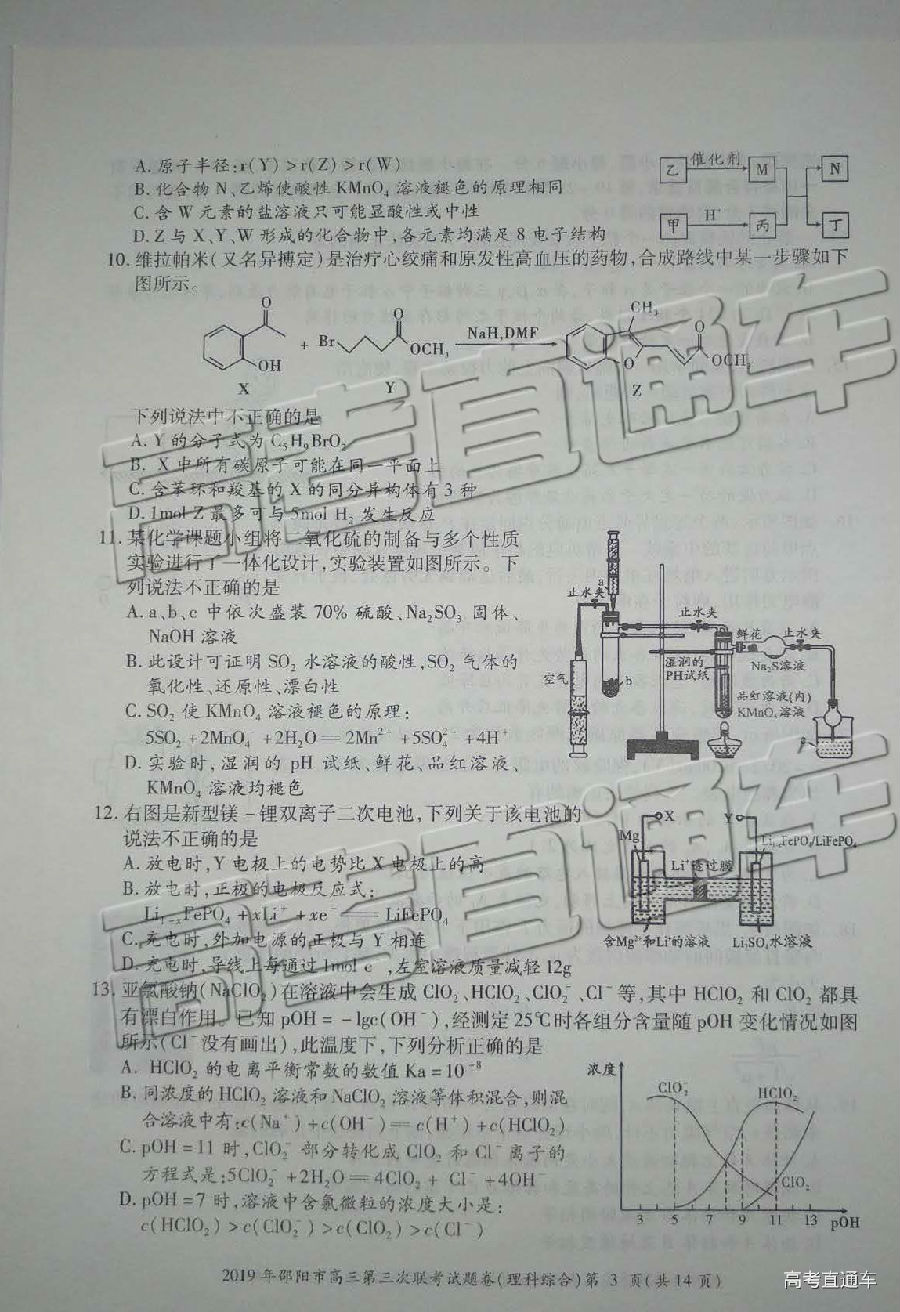 A.原子半径:r(Y)>r(Z)>r(W)
B.化合物N、乙烯使酸性KMnO₄溶液褪色的原理相同
C.含W元素的盐溶液只可能显酸性或中性
D.Z与X、Y、W形成的化合物中,各元素均满足8电子结构
乙 催化剂 M N
甲 H⁺ 丙 丁
10.维拉帕米(又名异搏定)是治疗心绞痛和原发性高血压的药物,合成路线中某一步骤如下
图所示。
O OH + Br O OCH₃ NaH,DMF CH₃ O O OCH₃
X Y Z
下列说法中不正确的是
A.Y的分子式为C₅H₉BrO₂
B.X中所有碳原子可能在同一平面上
C.含苯环和羧基的X的同分异构体有3种
D.1mol Z最多可与5mol H₂发生反应
11.某化学课题小组将二氧化硫的制备与多个性质
实验进行了一体化设计,实验装置如图所示。下
列说法不正确的是
A.a、b、c中依次盛装70%硫酸、Na₂SO₃固体、
NaOH溶液
B.此设计可证明SO₂水溶液的酸性,SO₂气体的
氧化性、还原性、漂白性
C.SO₂使KMnO₄溶液褪色的原理:
5SO₂+2MnO₄⁻+2H₂O=2Mn²⁺+5SO₄²⁻+4H⁺
D.实验时,湿润的pH试纸、鲜花、品红溶液、
KMnO₄溶液均褪色
止水夹 a
止水夹
鲜花 止水夹
湿润的
PH试纸
Na₂S溶液
空气 b
品红溶液(内)
KMnO₄溶液
12.右图是新型镁-锂双离子二次电池,下列关于该电池的
说法不正确的是
A.放电时,Y电极上的电势比X电极上的高
B.放电时,正极的电极反应式:
Li₁₋ₓFePO₄+xLi⁺+xe⁻=LiFePO₄
C.充电时,外加电源的正极与Y相连
D.充电时,导线上每通过1mol e⁻,左室溶液质量减轻12g
X Y
Mg Li₁₋ₓFePO₄/LiFePO₄
Li⁺透过膜
含Mg²⁺和Li⁺的溶液 Li₂SO₄水溶液
13.亚氯酸钠(NaClO₂)在溶液中会生成ClO₂、HClO₂、ClO₂⁻、Cl⁻等,其中HClO₂和ClO₂都具
有漂白作用。已知pOH=-lgc(OH⁻),经测定25℃时各组分含量随pOH变化情况如图
所示(Cl⁻没有画出),此温度下,下列分析正确的是
A.HClO₂的电离平衡常数的数值Ka=10⁻⁸
B.同浓度的HClO₂溶液和NaClO₂溶液等体积混合,则混
合溶液中有:c(Na⁺)+c(OH⁻)=c(H⁺)+c(HClO₂)
C.pOH=11时,ClO₂⁻部分转化成ClO₂和Cl⁻离子的
方程式是:5ClO₂⁻+2H₂O=4ClO₂+Cl⁻+4OH⁻
D.pOH=7时,溶液中含氯微粒的浓度大小是:
c(HClO₂)>c(ClO₂⁻)>c(ClO₂)>c(Cl⁻)
浓度
ClO₂⁻ HClO₂
ClO₂
3 5 7 8 9 11 13 pOH
2019年邵阳市高三第三次联考试题卷(理科综合)第 3 页(共14页)
高考直通车
高考直通车
高考直通车